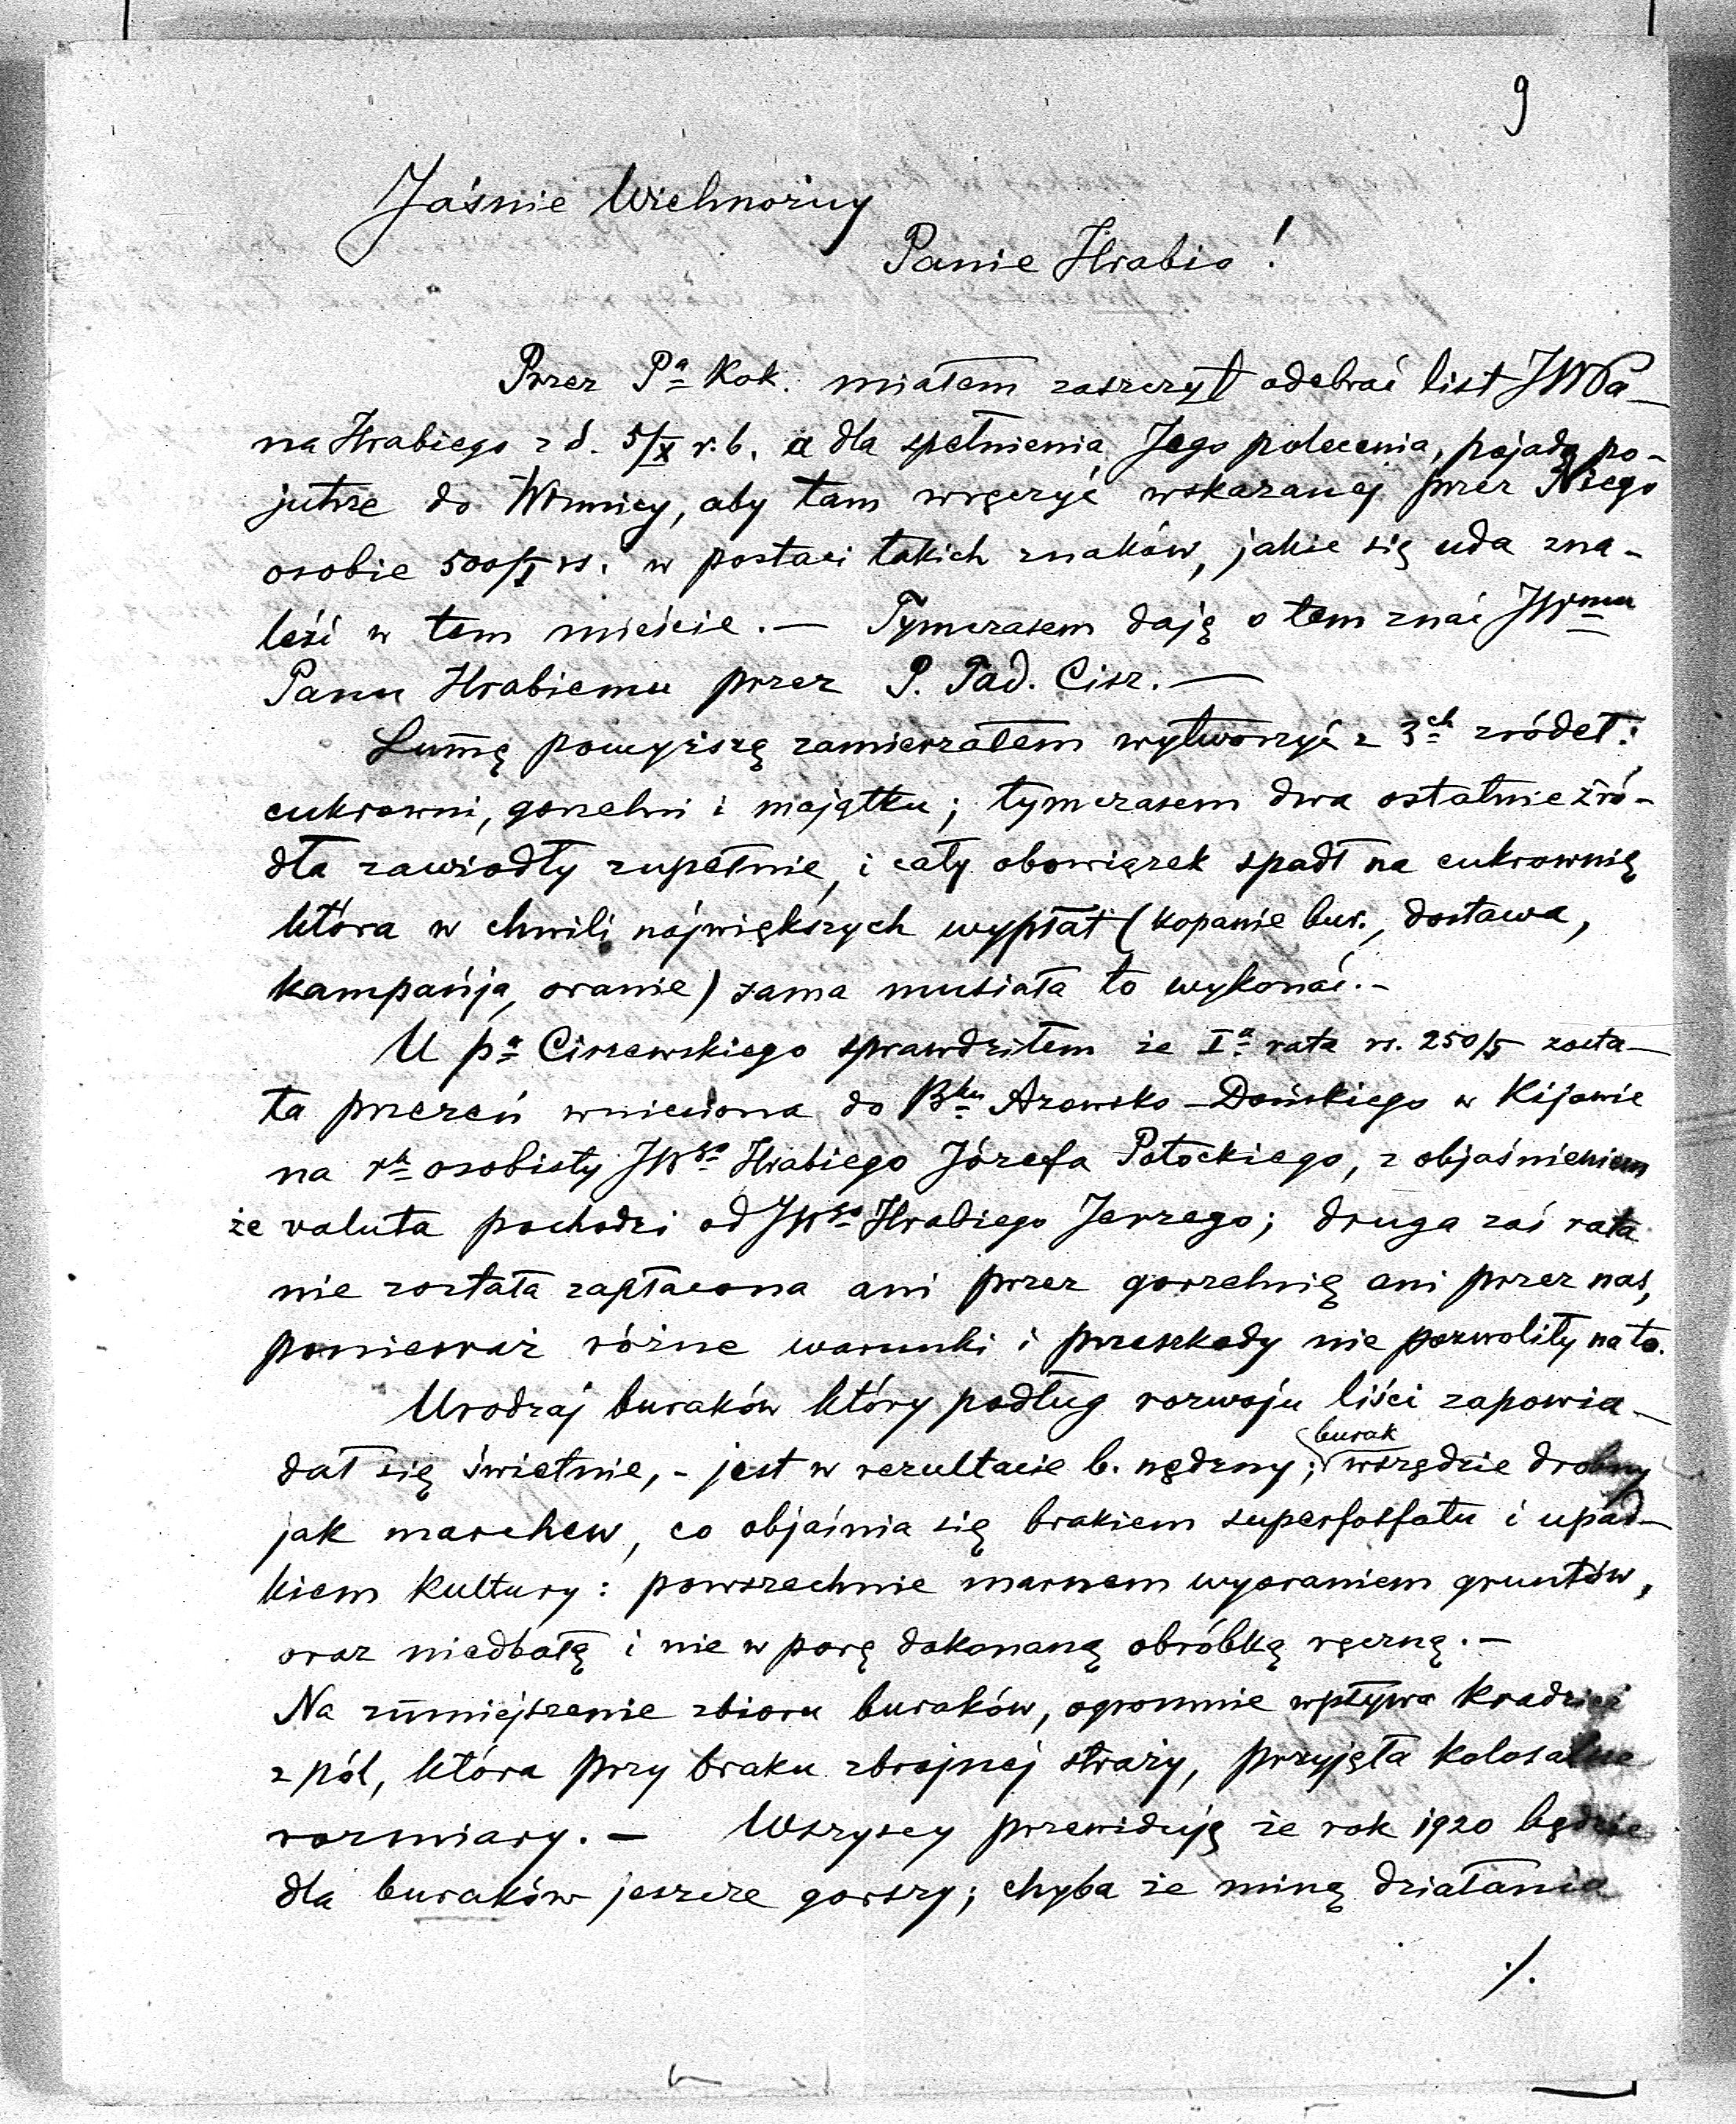 9
Jaśnie Wielmożny
Panie Hrabio!
Przez Pa Kok. miałem zaszczyt odebrać list JWPa-
na Hrabiego z d. 5/X r.b. a dla spełnienia Jego polecenia, pojadę po-
jutrze do Winnicy, aby tam wręczyć wskazanej przez Niego
osobie 500/T rs. w postaci takich znaków, jakie się uda zna-
leźć w tem mieście. — Tymczasem daję o tem znać JWmu
Panu Hrabiemu przez P. Tad. Cisz. —
Summę powyższą zamierzałem wytworzyć z 3ch źródeł:
cukrowni, gorzelni i majątku; tymczasem dwa ostatnie źró-
dła zawiodły zupełnie, i cały obowiązek spadł na cukrownię
która w chwili najwiękrzych wypłat (kopanie bur., dostawa,
kampańja, oranie) sama musiała to wykonać. -
U pa Ciszewskiego sprawdziłem że Ia rata rs. 250/T zosta-
ła przezeń wniesiona do Bku Azowsko-Dońskiego w Kijowie
na rk osobisty JWgo Hrabiego Józefa Potockiego, z objaśnieniem
że valuta pochodzi od JWgo Hrabiego Jerzego; druga zaś rata
nie została zapłacona ani przez gorzelnię ani przez nas,
ponieważ różne warunki i przeszkody nie pozwoliły na to.
Urodzaj buraków który podług rozwoju liści zapowia-
dał się świetnie, - jest w rezultacie b. nędzny; burak wszędzie drobny
jak marchew, co objaśnia się brakiem superfosfatu i upad-
kiem kultury: powszechnie marnem wyoraniem gruntów,
oraz niedbałą i nie w porę dokonaną obróbką ręczną. -
Na zmniejszenie zbioru buraków, ogromnie wpływa kradzież
z pól, która przy braku zbrojnej straży, przyjęła kolosalne
rozmiary. — Wszyscy przewidują że rok 1920 będzie
dla buraków jeszcze gorszy; chyba że miną działania
./.